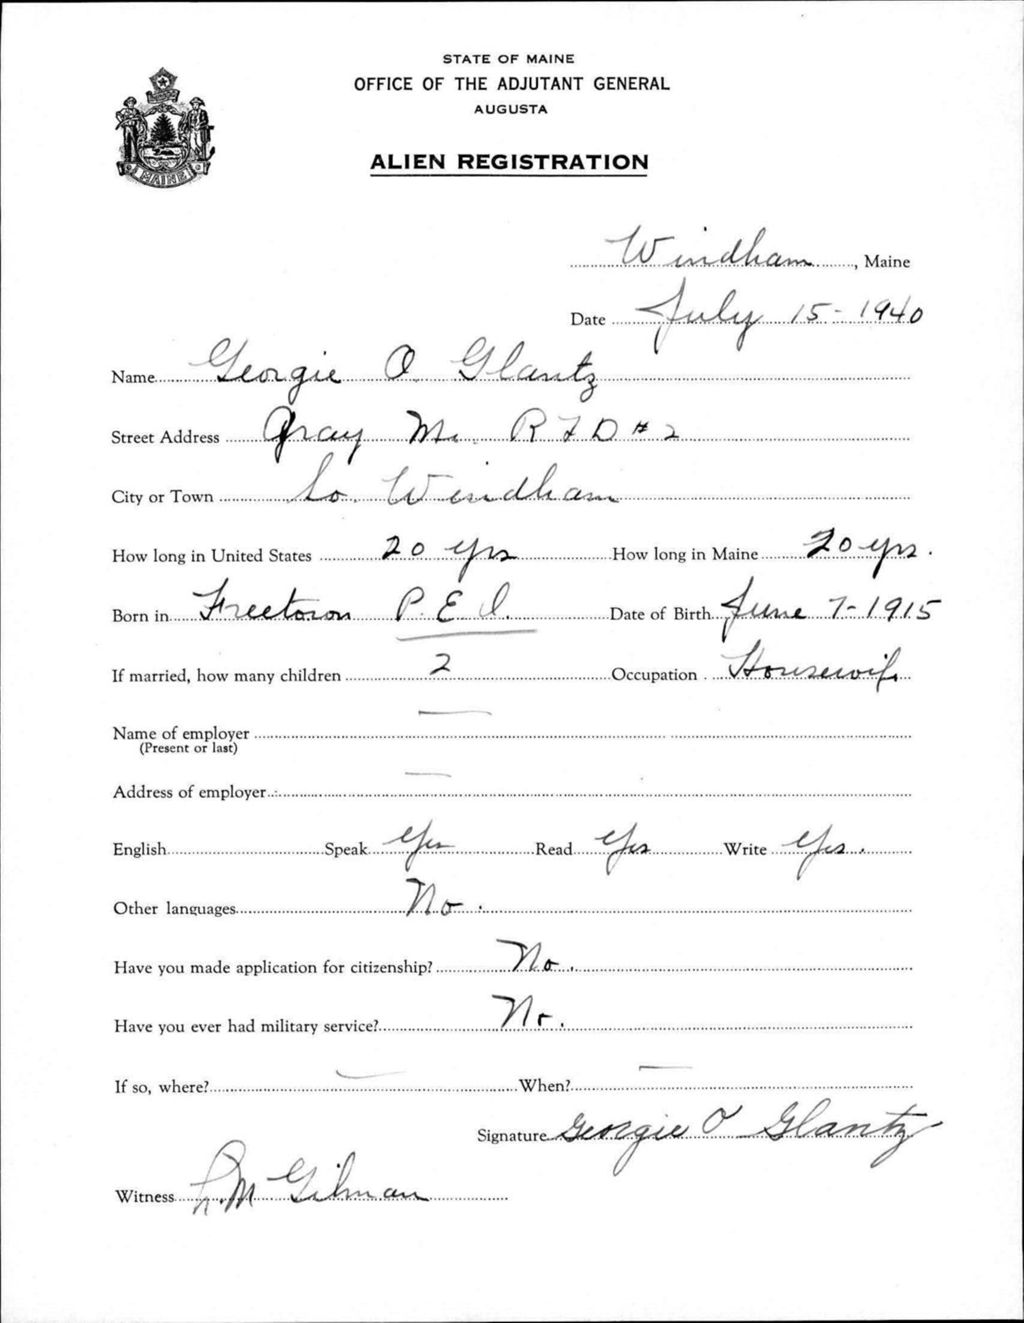 STATE OF MAINE
OFFICE OF THE ADJUTANT GENERAL
AUGUSTA
ALIEN REGISTRATION
MAINE
Windham, Maine
Date July 15-1940
Name Georgie O Glantz
Street Address Gray Me. R F D # 2
City or Town So. Windham
How long in United States 20 yrs How long in Maine 20 yrs.
Born in Freetown P. E. I. Date of Birth June 7-1915
If married, how many children 2 Occupation Housewife
Name of employer —
(Present or last)
Address of employer —
English Speak Yes Read Yes Write Yes.
Other languages No.
Have you made application for citizenship? No.
Have you ever had military service? No.
If so, where? — When? —
Signature Georgie O Glantz
Witness L. M Gilman